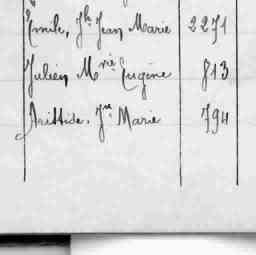 Emile, Jh Jean Marie 2271
Julien Mrie Eugène 813
Aristide, Jn Marie 794